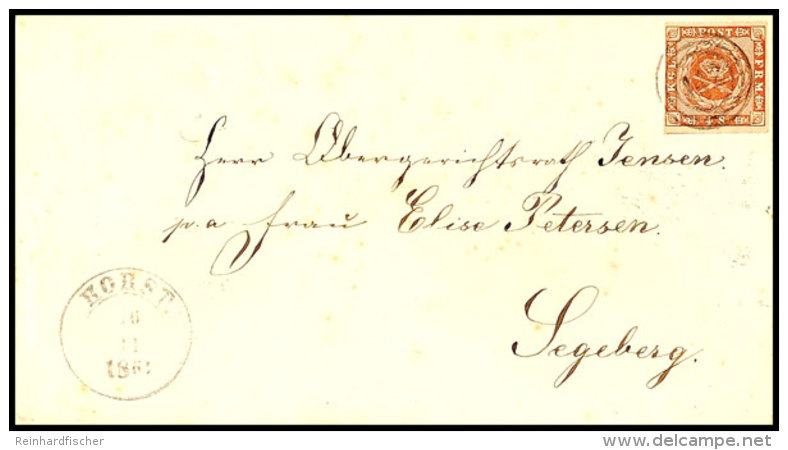 KGL POST FRM
4 S
Herr Obergerichtsrath Jensen.
p. a Frau Elise Petersen.
Segeberg.
HORST
11
1861
Reinhardfischer
www.delcampe.net